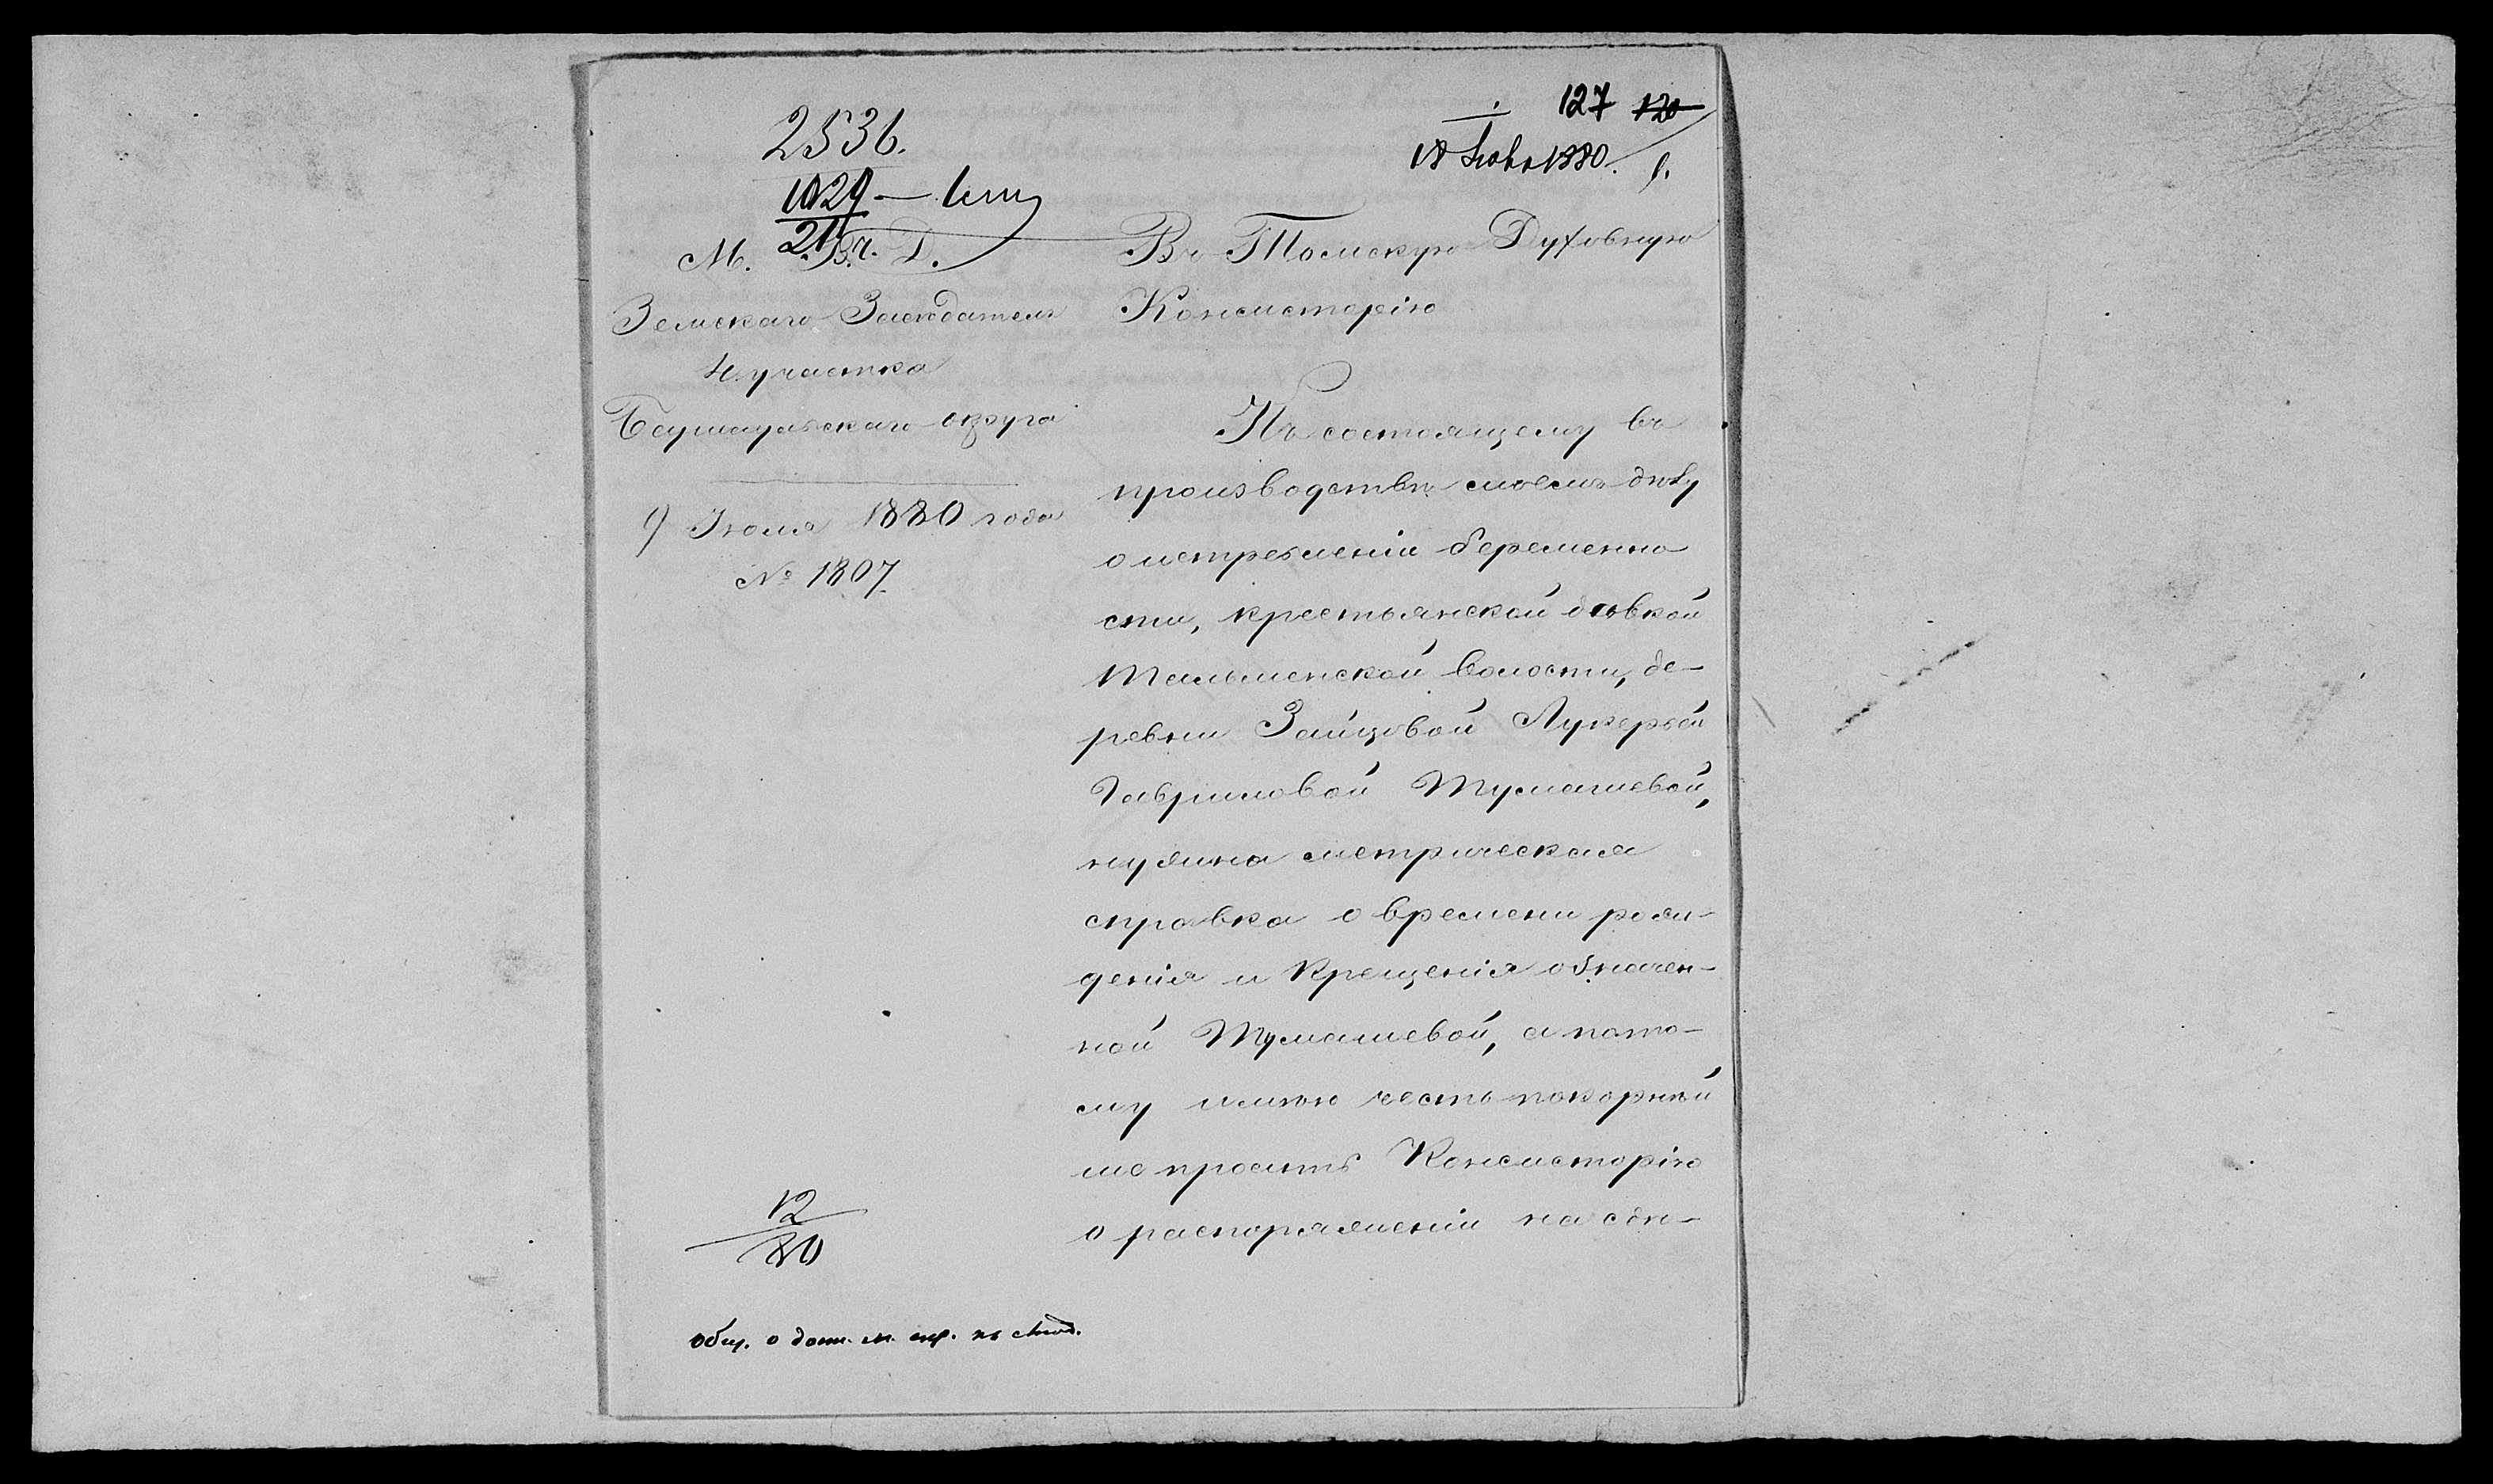 2536.
127 120
18 Июля 1880.
1029
21
М. В. Д.
Земскаго Заседателя
4 участка
Барнаульскаго округа
9 Июля 1880 года
№ 1807.
Въ Томскую Духовную
Консисторію
Къ состоящему въ
производстве моемъ делу
о истребленіи беременно
сти, крестьянской девкой
Тальменской волости, де-
ревни Зайцовой Лукерьей
Гавриловой Тумашевой,
нужна метрическая
справка о времени рож-
денія и крещенія означен-
ной Тумашевой, а пото-
му имѣю честь покорнѣй
ше просить Консисторію
о распоряженіи на сдѣ-
12
80